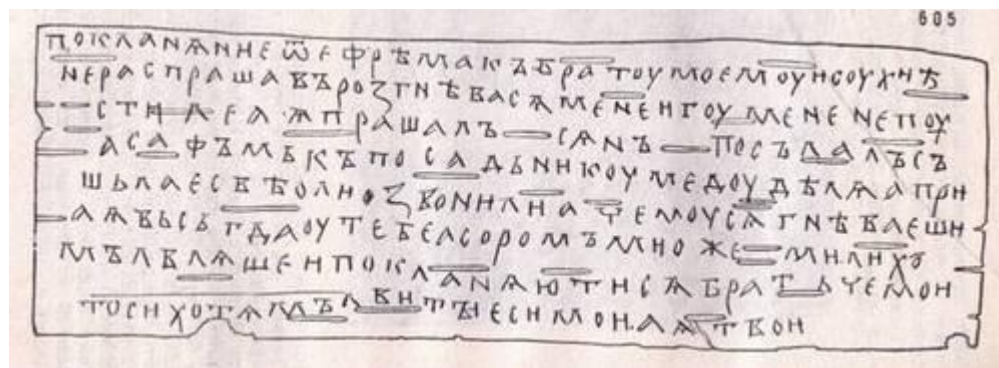 покланѧниеѿефрѣмакъбратоумоемоуисоухиѣ
нераспрашавърозгнѣвасѧменеигоуменепоу
стилеаѧпрашалъсѧнъпосълалъсъ
асафъмькъпосадьникоумедоудѣлѧапри
шьлаесвѣолизвонилиачемоусѧгнѣваеши
аѧвьсьгдаоутебеасоромъмиожемилихо
мълвлѧшеипокланѧютисѧбратьчемои
тосихотѧмълвитыесимоиаѧтвои
605